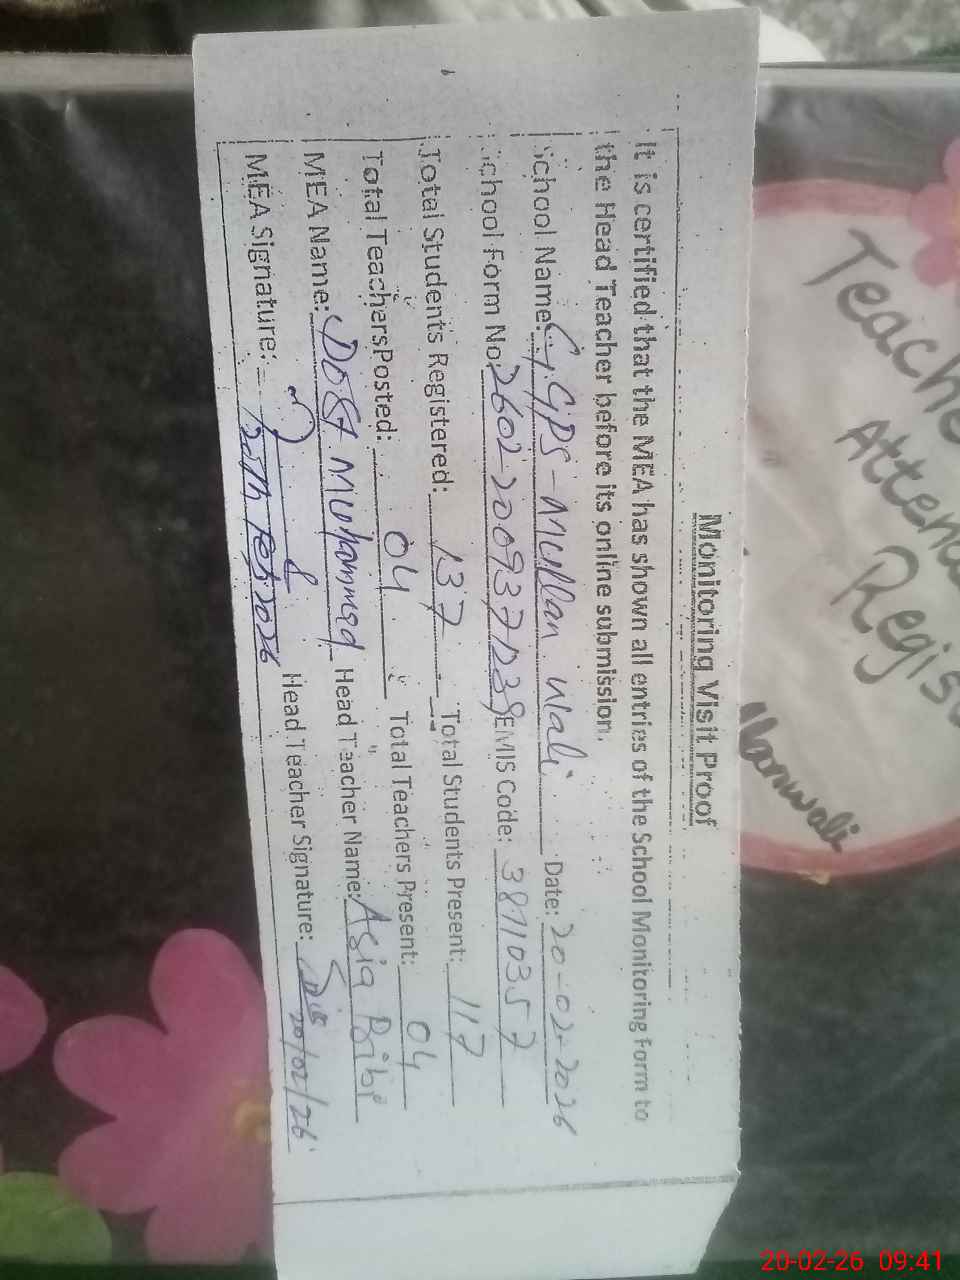 Monitoring Visit Proof
It is certified that the MEA has shown all entries of the School Monitoring Form to
the Head Teacher before its online submission.
School Name: GGPS-Mullan wali Date: 20-02-2026
School Form No: EMIS Code: 38110357
Total Students Registered: 137 Total Students Present: 117
Total Teachers Posted: 04 Total Teachers Present: 04
MEA Name: Dost Muhammad Head Teacher Name: Asia Bibi
MEA Signature: Head Teacher Signature:
20th Feb 2026 20/02/26
Teache
Atten
Regis
20-02-26 09:41